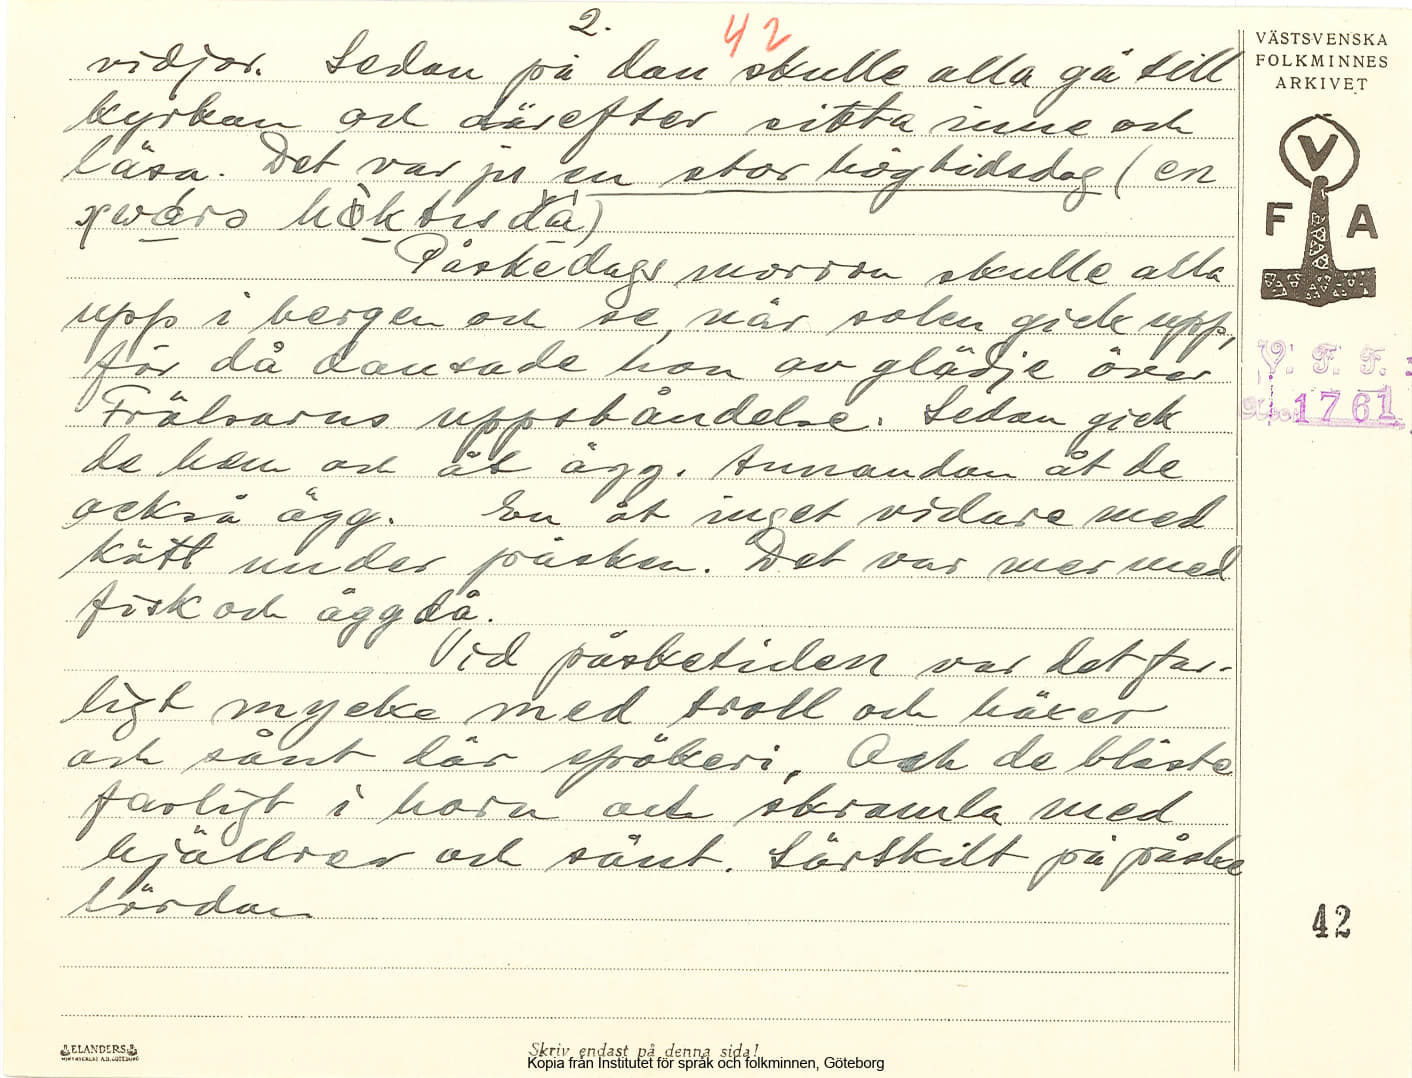 2.
42
vidjor. Sedan på dan skulle alla gå till
kyrkan och därefter sitta inne och
läsa. Det var ju en stor högtidsdag (en
Påskedags morron skulle alla
upp i bergen och se, när solen gick upp,
för då dansade hon av glädje över
Frälsarns uppståndelse. Sedan gick
de hem och åt ägg. Annandan åt de
också ägg. En åt inget vidare med
kött under påsken. Det var mer med
fisk och ägg då.
Vid påsketiden var det far-
ligt mycke med troll och häxer
och sånt där spökeri. Och de blåste
farligt i horn och skramla med
bjällror och sånt. Särskilt på påske
lördan
VÄSTSVENSKA
FOLKMINNES
ARKIVET
V
F A
V. F. F.
1761
42
ELANDERS
Skriv endast på denna sida!
Kopia från Institutet för språk och folkminnen, Göteborg